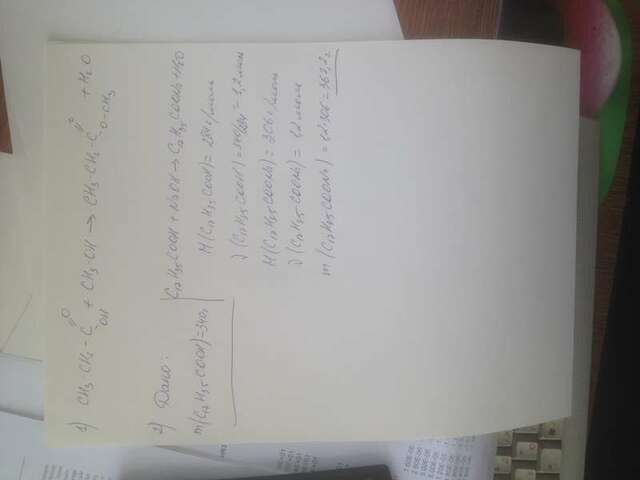 1) CH₃-CH₂-C=O OH + CH₃-OH → CH₃-CH₂-C=O O-CH₃ + H₂O
2) Дано:
m(C₁₇H₃₅COOH)=340г
C₁₇H₃₅COOH + NaOH → C₁₇H₃₅COONa+H₂O
M(C₁₇H₃₅COOH)= 284 г/моль
ν(C₁₇H₃₅COOH)=340/284 = 1,2 моль
M(C₁₇H₃₅COONa)= 306 г/моль
ν(C₁₇H₃₅COONa)= 1,2 моль
m(C₁₇H₃₅COONa)=1,2·306=367,2г